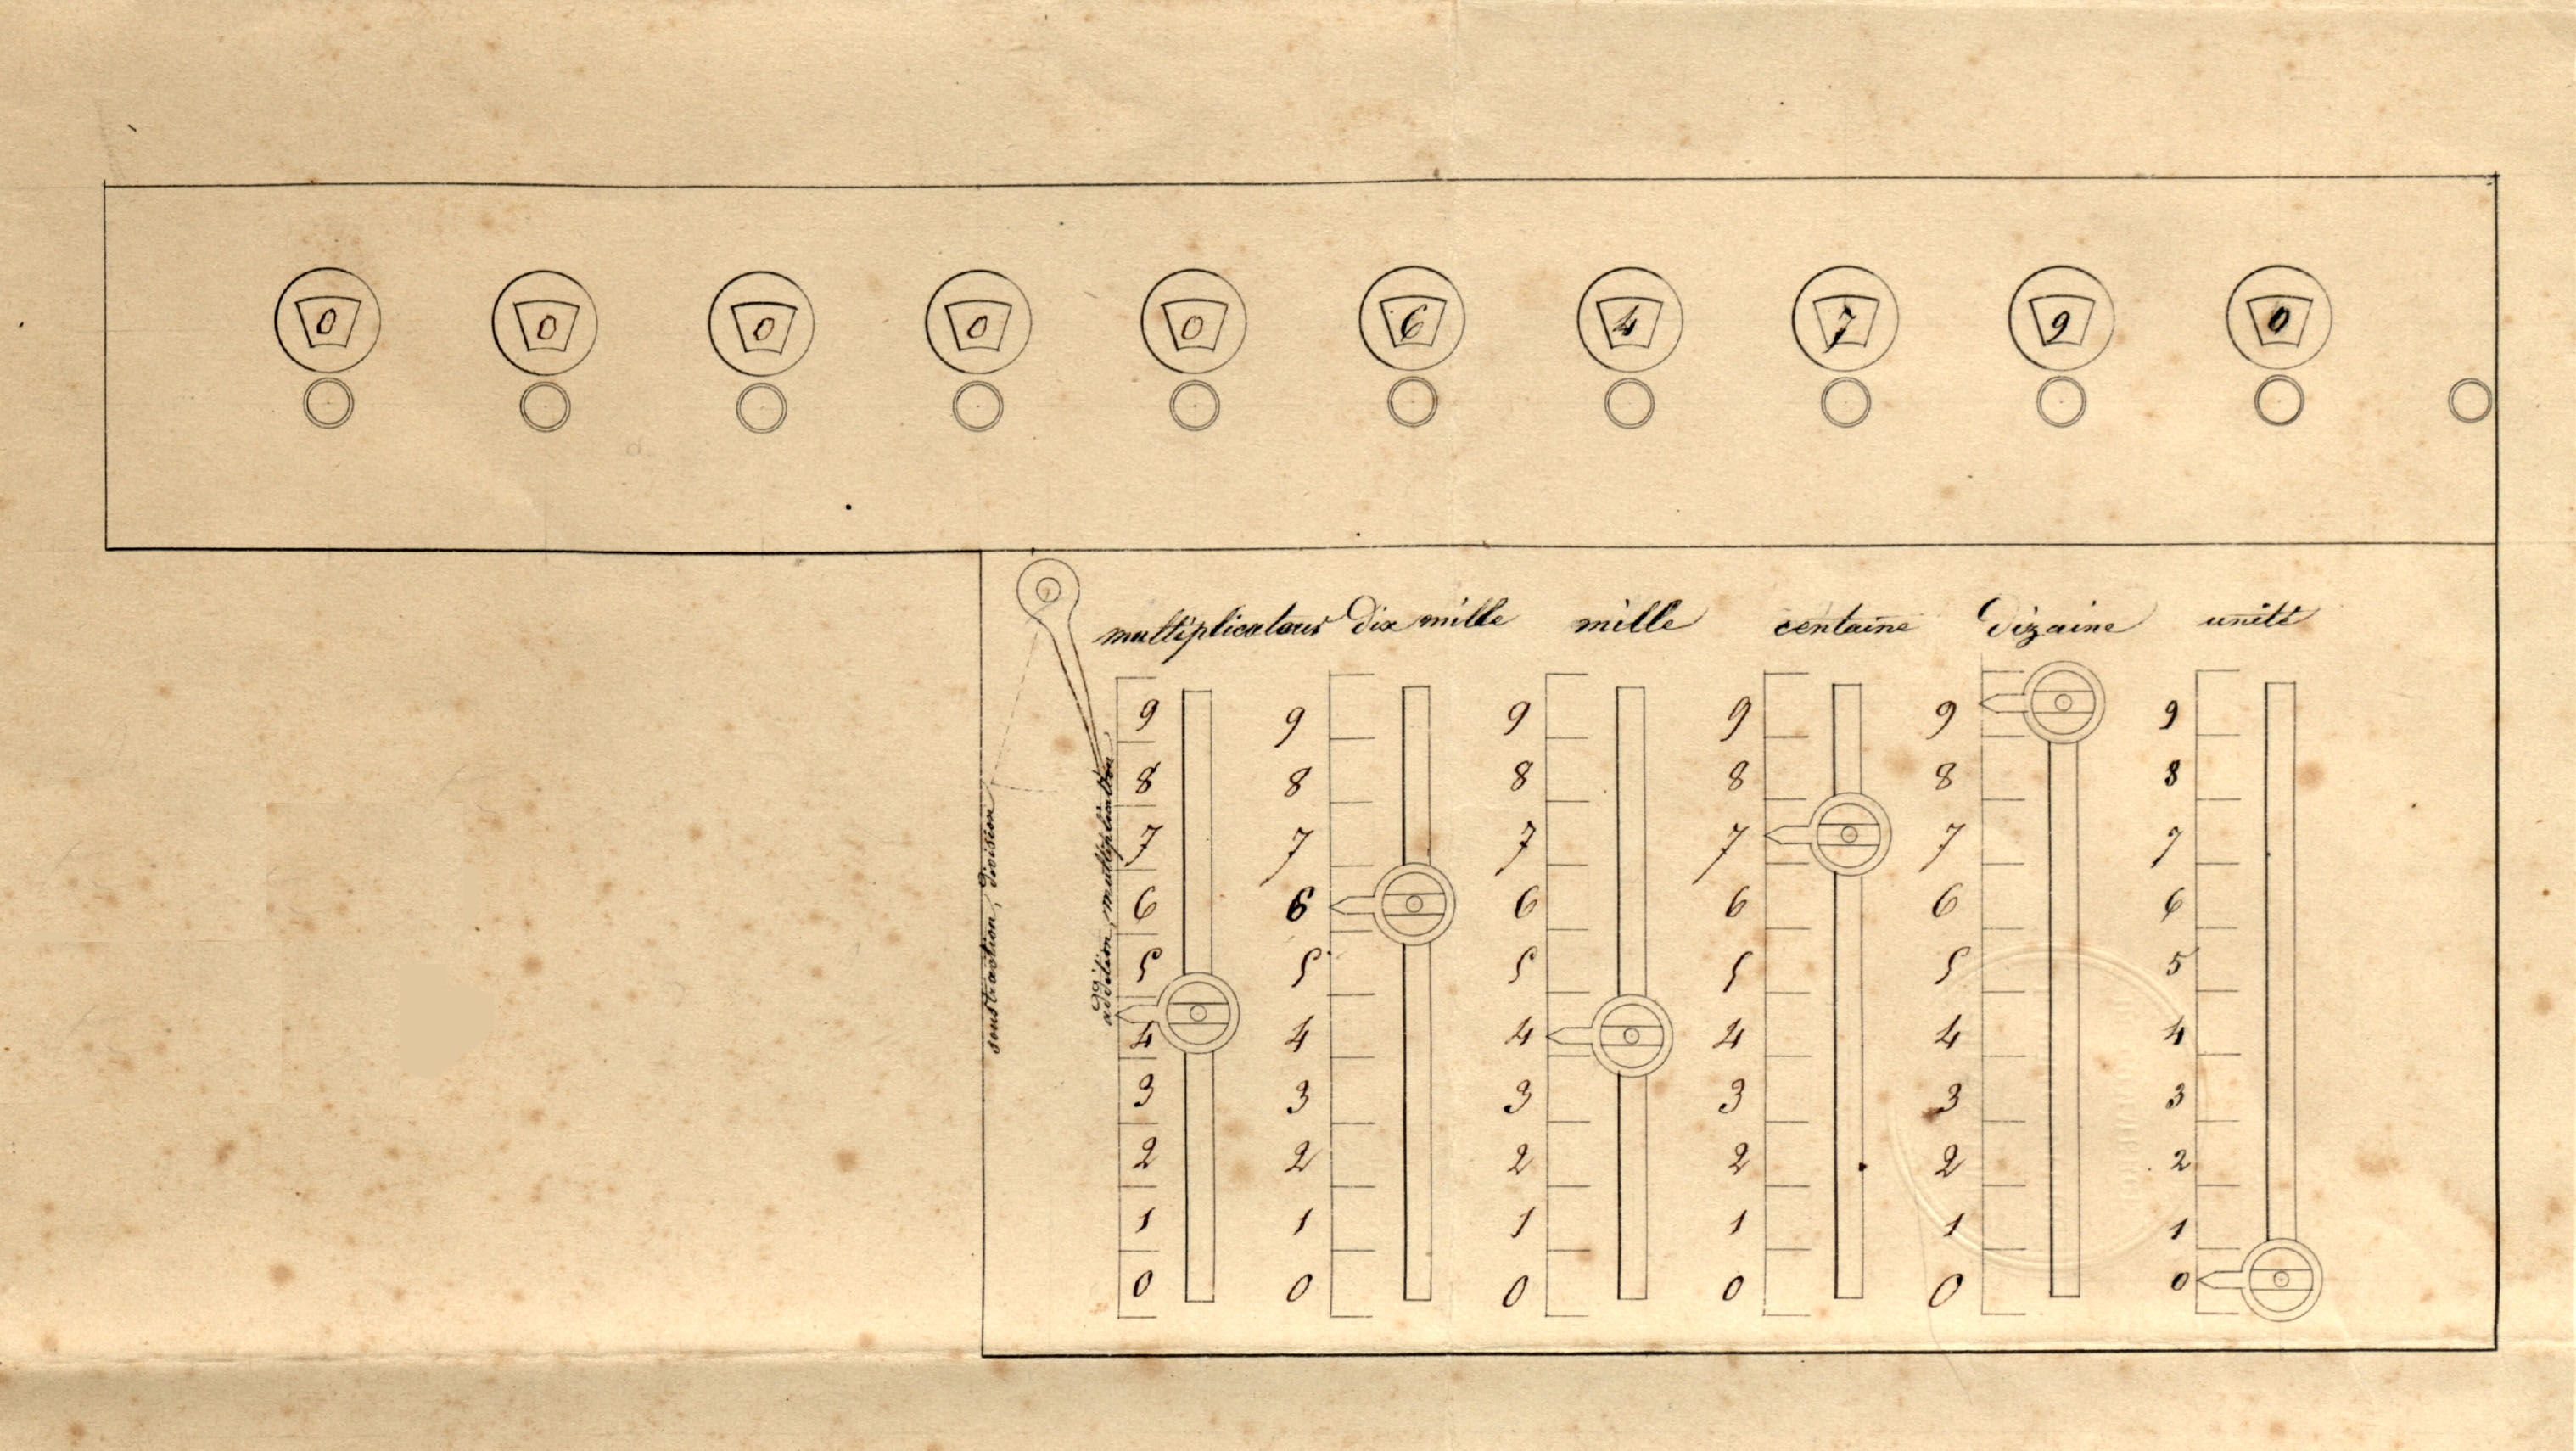 0 0 0 0 0 6 4 7 9 0
multiplicateur dix mille mille centaine Dizaine unité
soustraction, Division
addition, multiplication
9 9 9 9 9 9
8 8 8 8 8 8
7 7 7 7 7 7
6 6 6 6 6 6
5 5 5 5 5 5
4 4 4 4 4 4
3 3 3 3 3 3
2 2 2 2 2 2
1 1 1 1 1 1
0 0 0 0 0 0